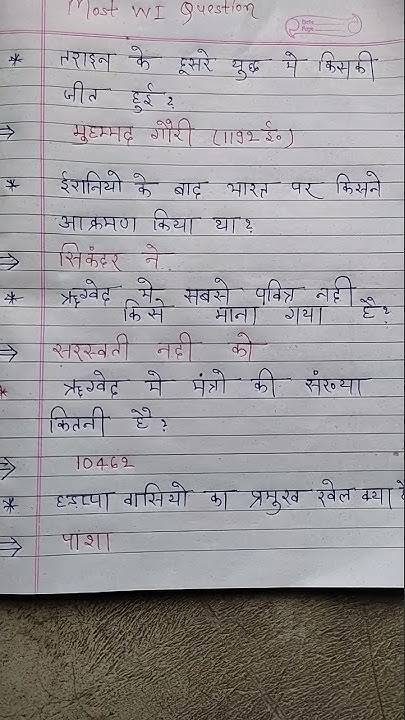 Most WI Question
Date
Page
* तराइन के दूसरे युद्ध मे किसकी
जीत हुई?
⇒ मुहम्मद गौरी (1192 ई०)
* ईरानियो के बाद भारत पर किसने
आक्रमण किया था?
⇒ सिकंदर ने.
* ऋग्वेद मे सबसे पवित्र नदी
किसे माना गया है?
⇒ सरस्वती नदी को
* ऋग्वेद मे मंत्रो की संख्या
कितनी है?
⇒ 10462
* हड़प्पा वासियो का प्रमुख खेल क्या है
⇒ पाशा